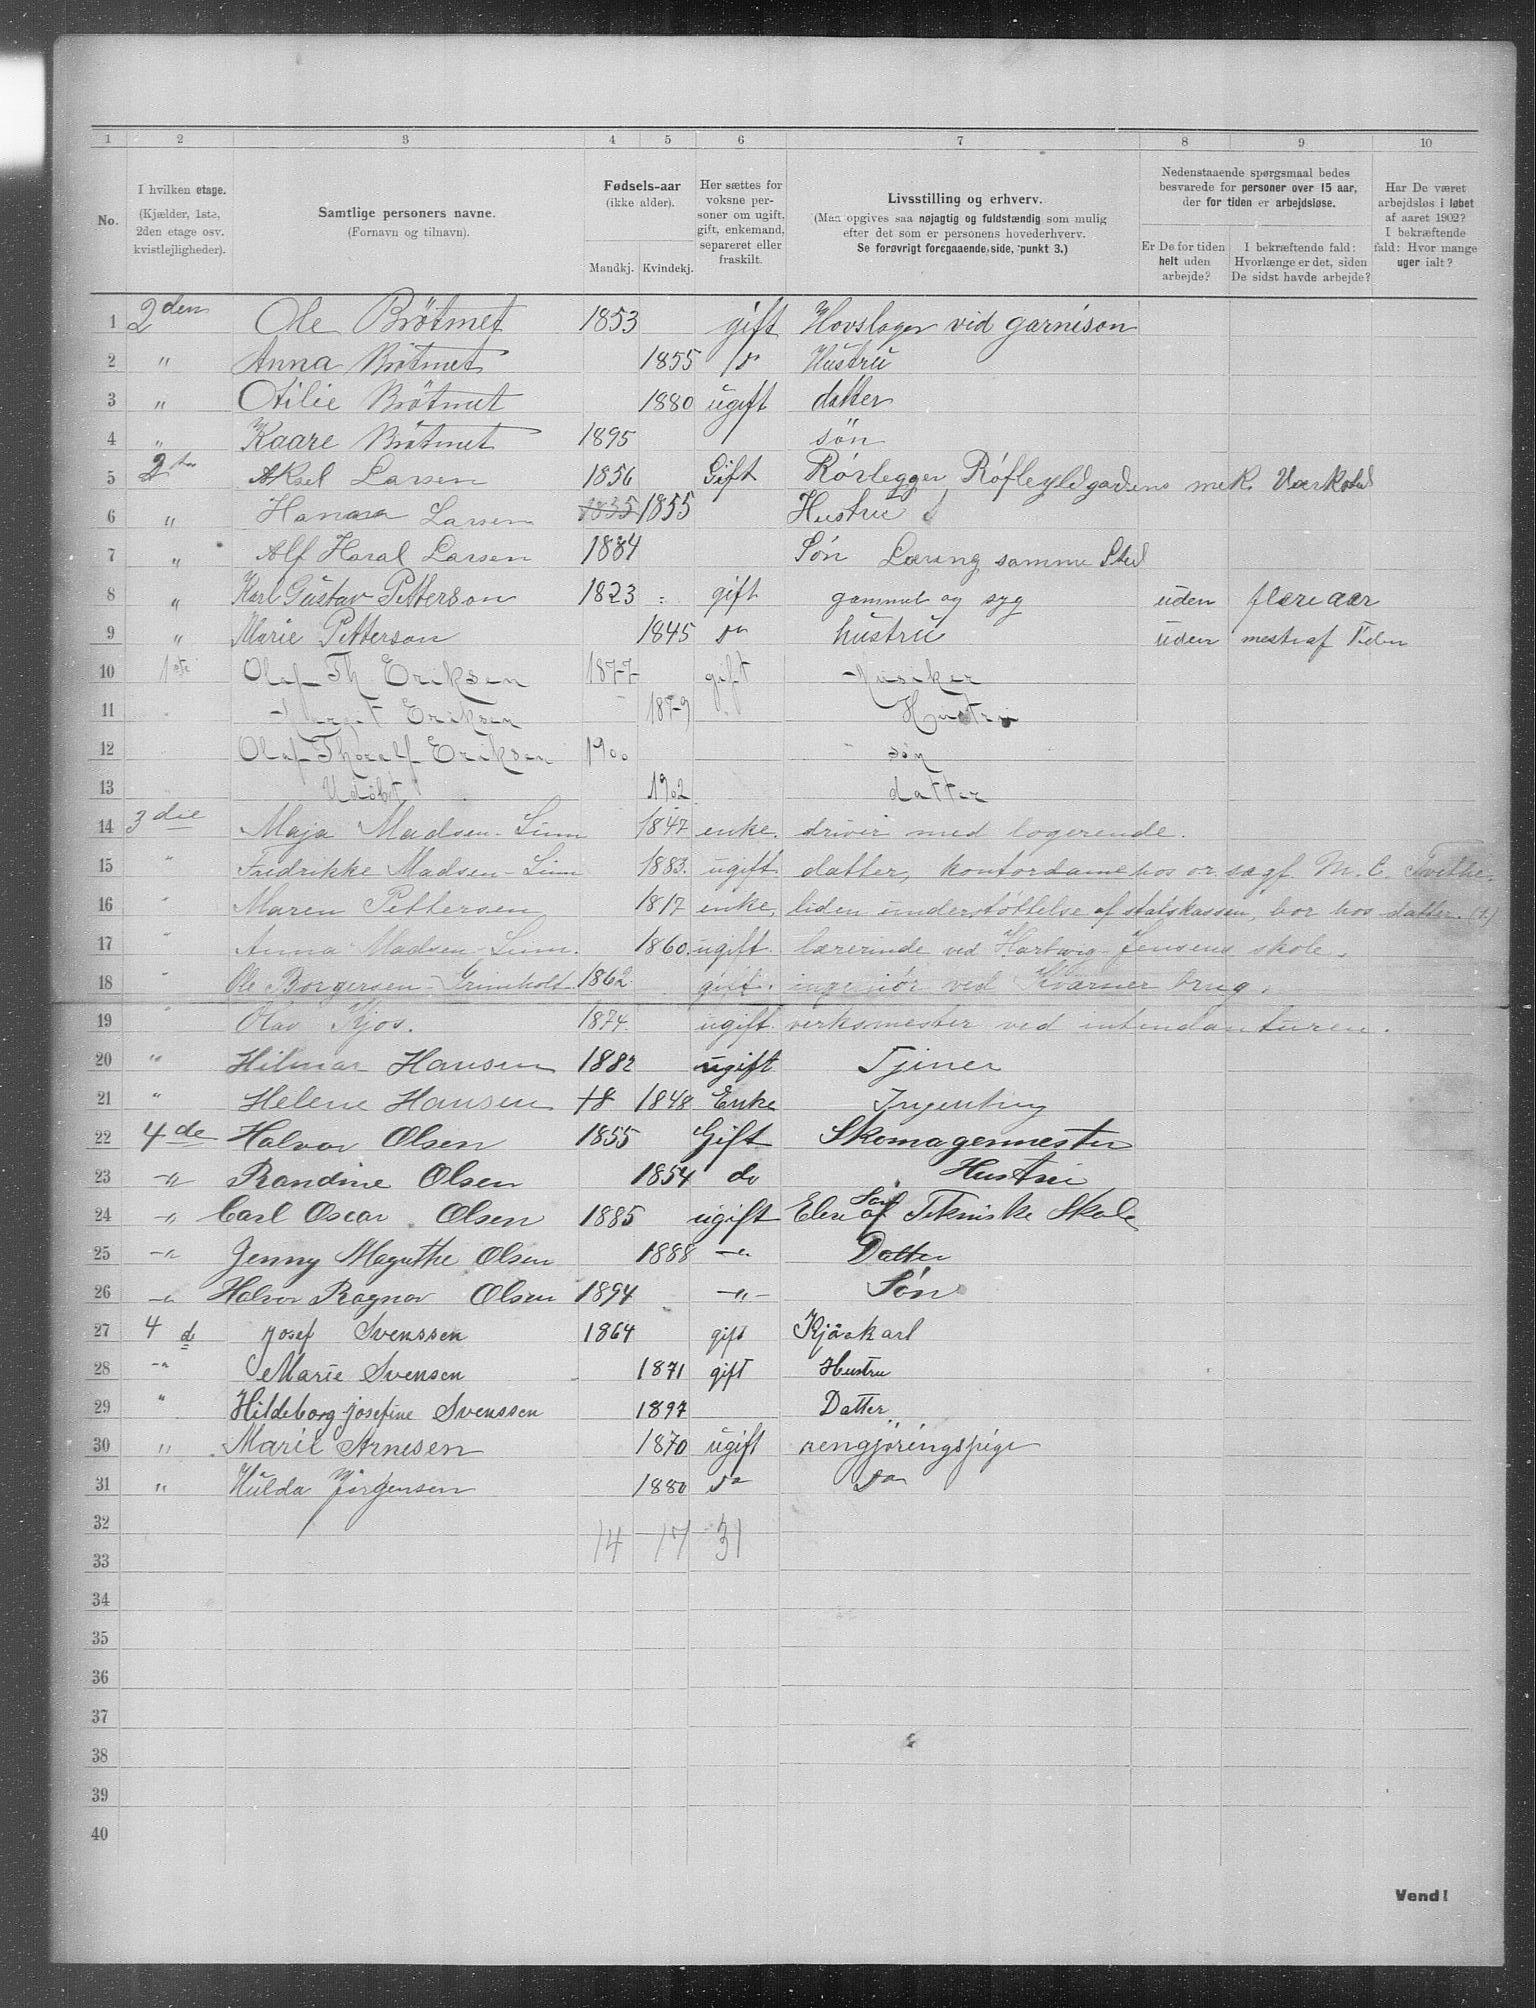 1 2 3 4 5 6 7 8 9 10
No.
I hvilken etage.
(Kjælder, 1ste,
2den etage osv.
kvistlejligheder).
Samtlige personers navne.
(Fornavn og tilnavn).
Fødsels-aar
(ikke alder).
Mandkj. Kvindekj.
Her sættes for
voksne per-
soner om ugift,
gift, enkemand,
separeret eller
fraskilt.
Livsstilling og erhverv.
(Man opgives saa nøjagtig og fuldstændig som mulig
efter det som er personens hovederhverv.
Se forøvrigt foregaaende side, punkt 3.)
Nedenstaaende spørgsmaal bedes
besvarede for personer over 15 aar,
der for tiden er arbejdsløse.
Er De for tiden
helt uden
arbejde?
I bekræftende fald:
Hvorlænge er det, siden
De sidst havde arbejde?
Har De været
arbejdsløs i løbet
af aaret 1902?
I bekræftende
fald: Hvor mange
uger ialt?
1 2den Ole Brötmet 1853 gift Hovslager vid garnison
2 " Anna Brötmet 1855 do Hustru
3 " Otilie Brötmet 1880 ugift datter
4 " Kaare Brötmet 1895 søn
5 Aksel Larsen 1856 Gift Rörlegger mek. Værksted
6 " Larsen 1835 1855 Hustru
7 " Alf Haral Larsen 1884 Sön Læring samme Sted
8 " Karl Gustav Petterson 1823 gift gammel og syg uden flere aar
9 " Marie Petterson 1845 do hustru uden mest af Tiden
10 1ste Olaf Th Eriksen 1877 gift Musiker
11 Eriksen 1879 Hustru
12 Olaf Thoralf Eriksen 1900 søn
13 Udöbt 1902 datter
14 3die Maja Madsen-Lium 1847 enke. driver med logerende.
15 " Fredrikke Madsen-Lium 1883. ugift. datter, kontordame hos or. sagf. M. E. Tvethe.
16 " Maren Pettersen 1817 enke, liden understøttelse af statskassen, bor hos datter. (1.)
17 " Anna Madsen-Lium. 1860. ugift. lærerinde ved Hartvig Jensens skole.
18 " Ole Borgersen-Grimholt 1862 gift. ingeniør ved Kværner brug.
19 " Olav Kjos. 1874. ugift. verksmester ved intendanturen.
20 " Hilmar Hansen 1882 ugift Tjener
21 " Helene Hansen 18 1848 Enke Ingenting
22 4de Halvor Olsen 1855 Gift Skomagermester
23 -"- Randine Olsen 1854 do Hustru
24 -"- Carl Oscar Olsen 1885 ugift Elev af Tekniske Skole
Søn
25 -"- Jenny Magnthe Olsen 1888 -"- Datter
26 -"- Halvor Ragnar Olsen 1894 -"- Sön
27 4 de Josef Svenssen 1864 gift Kjørekarl
28 -"- Marie Svensen 1871 gift Hustru
29 " Hildeborg Josefine Svenssen 1897 Datter
30 " Marie Arnesen 1870 ugift rengjøringspige
31 " Hulda Jörgensen 1880 do do
32
14 17 31
33
34
35
36
37
38
39
40
Vend!